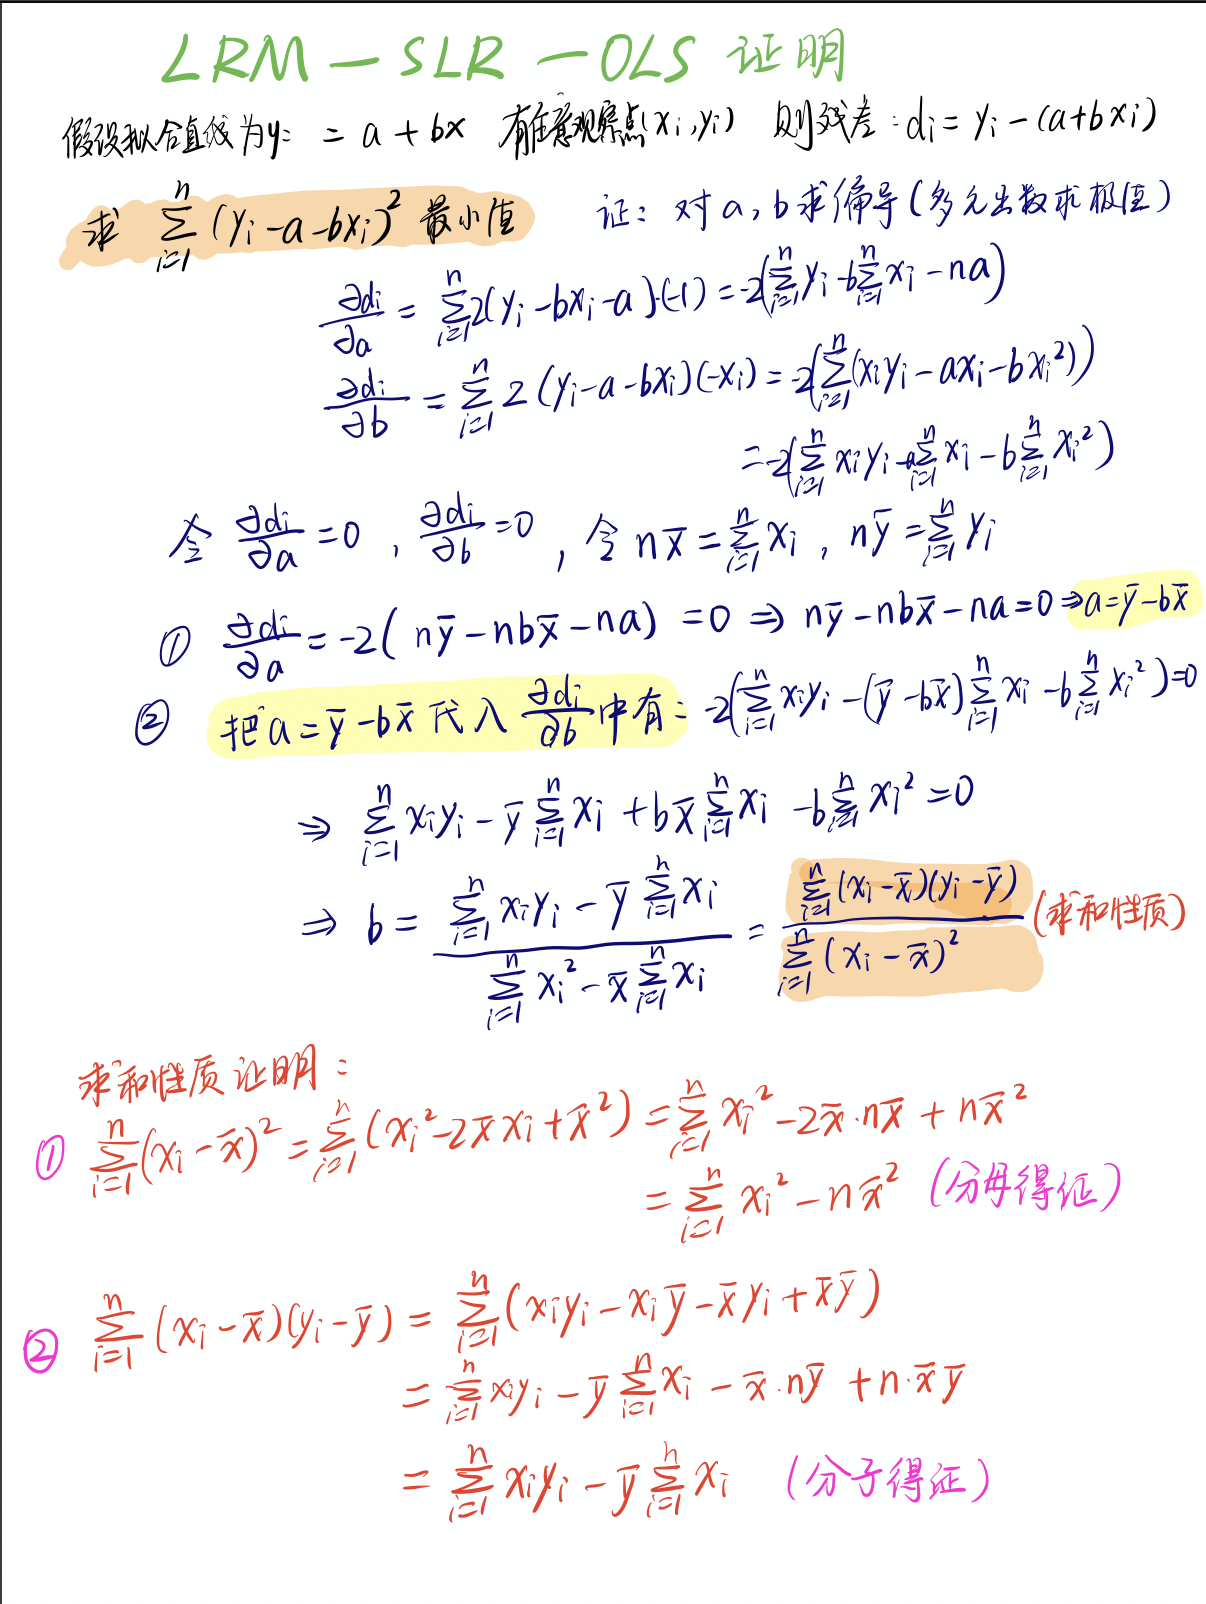 LRM — SLR — OLS 证明
假设拟合直线为y: = a + bx 有任意观察点(xi, yi) 则残差: di = yi − (a+bxi)
求 ∑_{i=1}^{n} (yi − a − bxi)² 最小值 证: 对 a, b 求偏导 (多元函数求极值)
∂di/∂a = ∑_{i=1}^{n} 2(yi − bxi − a)·(−1) = −2(∑_{i=1}^{n} yi − b∑_{i=1}^{n} xi − na)
∂di/∂b = ∑_{i=1}^{n} 2 (yi − a − bxi)(−xi) = −2(∑_{i=1}^{n} (xiyi − axi − bxi²))
= −2(∑_{i=1}^{n} xiyi − a∑_{i=1}^{n} xi − b∑_{i=1}^{n} xi²)
令 ∂di/∂a = 0 , ∂di/∂b = 0 , 令 nx̄ = ∑_{i=1}^{n} xi , nȳ = ∑_{i=1}^{n} yi
① ∂di/∂a = −2( nȳ − nbx̄ − na) = 0 ⇒ nȳ − nbx̄ − na = 0 ⇒ a = ȳ − bx̄
② 把 a = ȳ − bx̄ 代入 ∂di/∂b 中有: −2(∑_{i=1}^{n} xiyi − (ȳ − bx̄)∑_{i=1}^{n} xi − b∑_{i=1}^{n} xi²) = 0
⇒ ∑_{i=1}^{n} xiyi − ȳ∑_{i=1}^{n} xi + bx̄∑_{i=1}^{n} xi − b∑_{i=1}^{n} xi² = 0
⇒ b = (∑_{i=1}^{n} xiyi − ȳ∑_{i=1}^{n} xi) / (∑_{i=1}^{n} xi² − x̄∑_{i=1}^{n} xi) = ∑_{i=1}^{n} (xi − x̄)(yi − ȳ) / ∑_{i=1}^{n} (xi − x̄)² (求和性质)
求和性质证明:
① ∑_{i=1}^{n} (xi − x̄)² = ∑_{i=1}^{n} (xi² − 2x̄xi + x̄²) = ∑_{i=1}^{n} xi² − 2x̄·nx̄ + nx̄²
= ∑_{i=1}^{n} xi² − nx̄² (分母得证)
② ∑_{i=1}^{n} (xi − x̄)(yi − ȳ) = ∑_{i=1}^{n} (xiyi − xiȳ − x̄yi + x̄ȳ)
= ∑_{i=1}^{n} xiyi − ȳ∑_{i=1}^{n} xi − x̄·nȳ + n·x̄ȳ
= ∑_{i=1}^{n} xiyi − ȳ∑_{i=1}^{n} xi (分子得证)